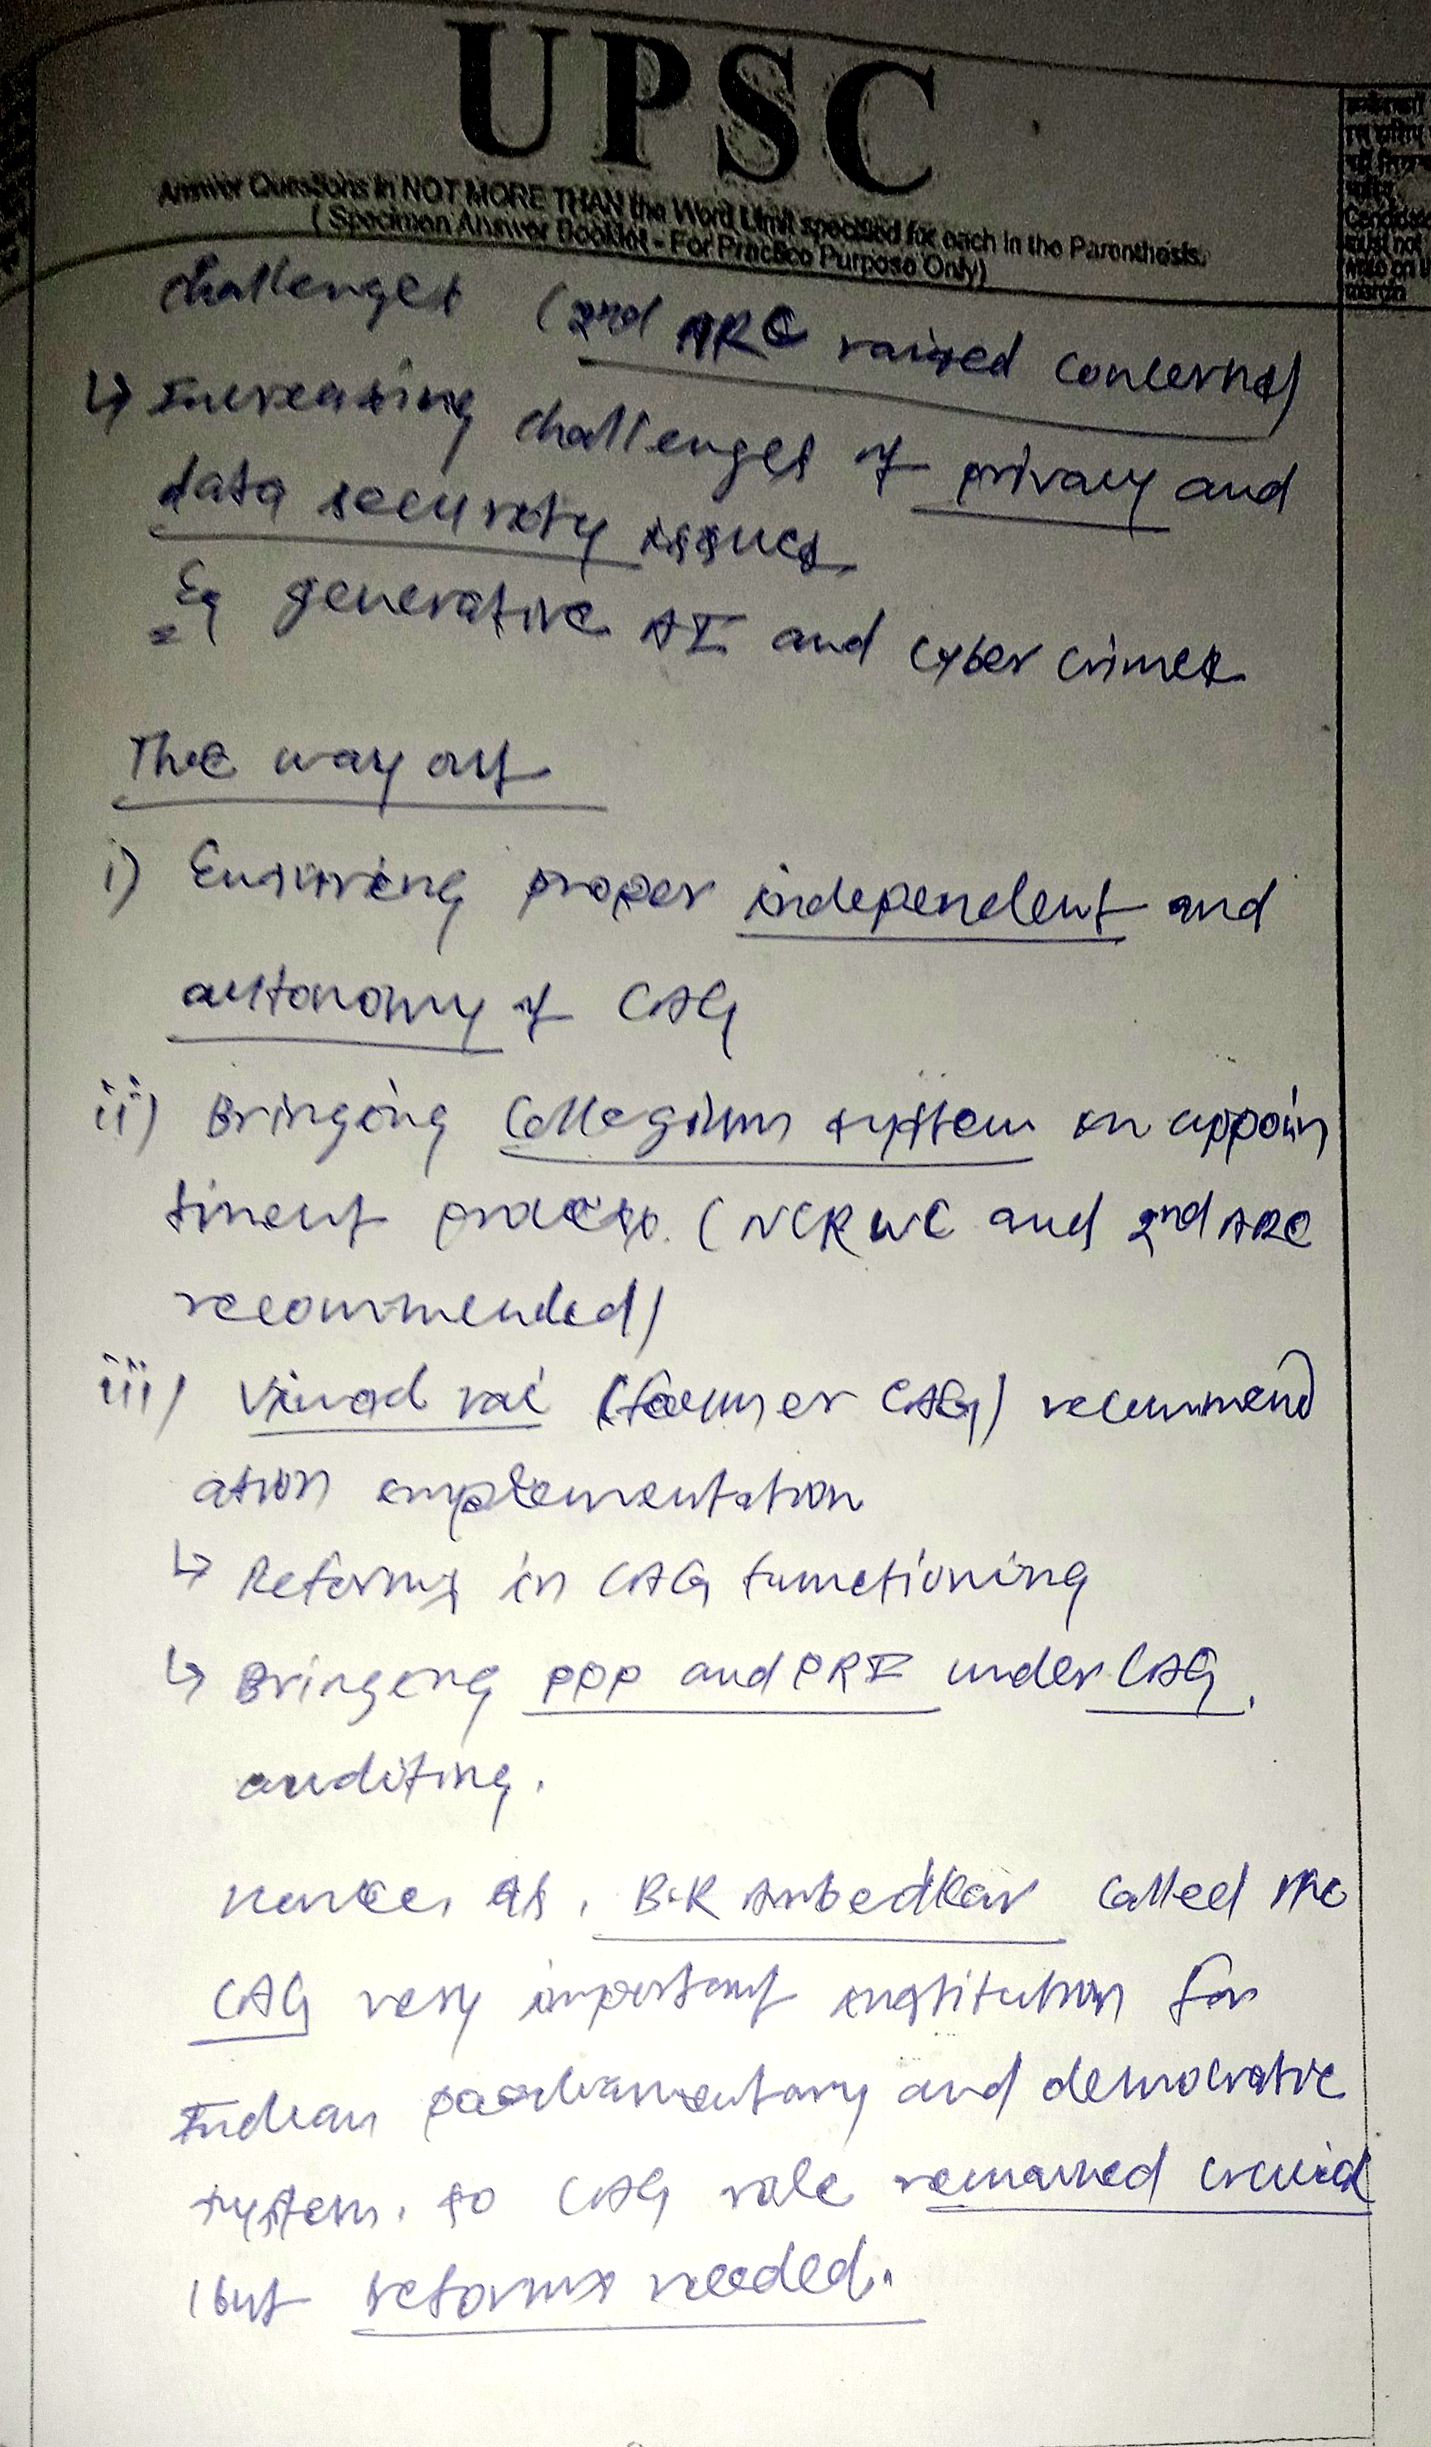 UPSC
Answer Questions in NOT MORE THAN the Word Limit specified for each in the Parenthesis.
(Specimen Answer Booklet - For Practice Purpose Only)
Candidate
must not
write on
margin
challenges (2nd ARC raised concerns)
↳ Increasing challenges of privacy and
data security issues
Eg generative AI and cyber crimes
The way out
i) Ensuring proper independent and
autonomy of CAG
ii) Bringing Collegium system in appoin
tment process. (NCRWC and 2nd ARC
recommended)
iii) Vinod rai (former CAG) recommend
ation implementation
↳ Reforms in CAG functioning
↳ Bringing PPP and PRI under CAG
auditing.
Hence, as, B.R Ambedkar called the
CAG very important institution for
Indian parliamentary and democratic
system. so CAG role remained crucial
but reforms needed.